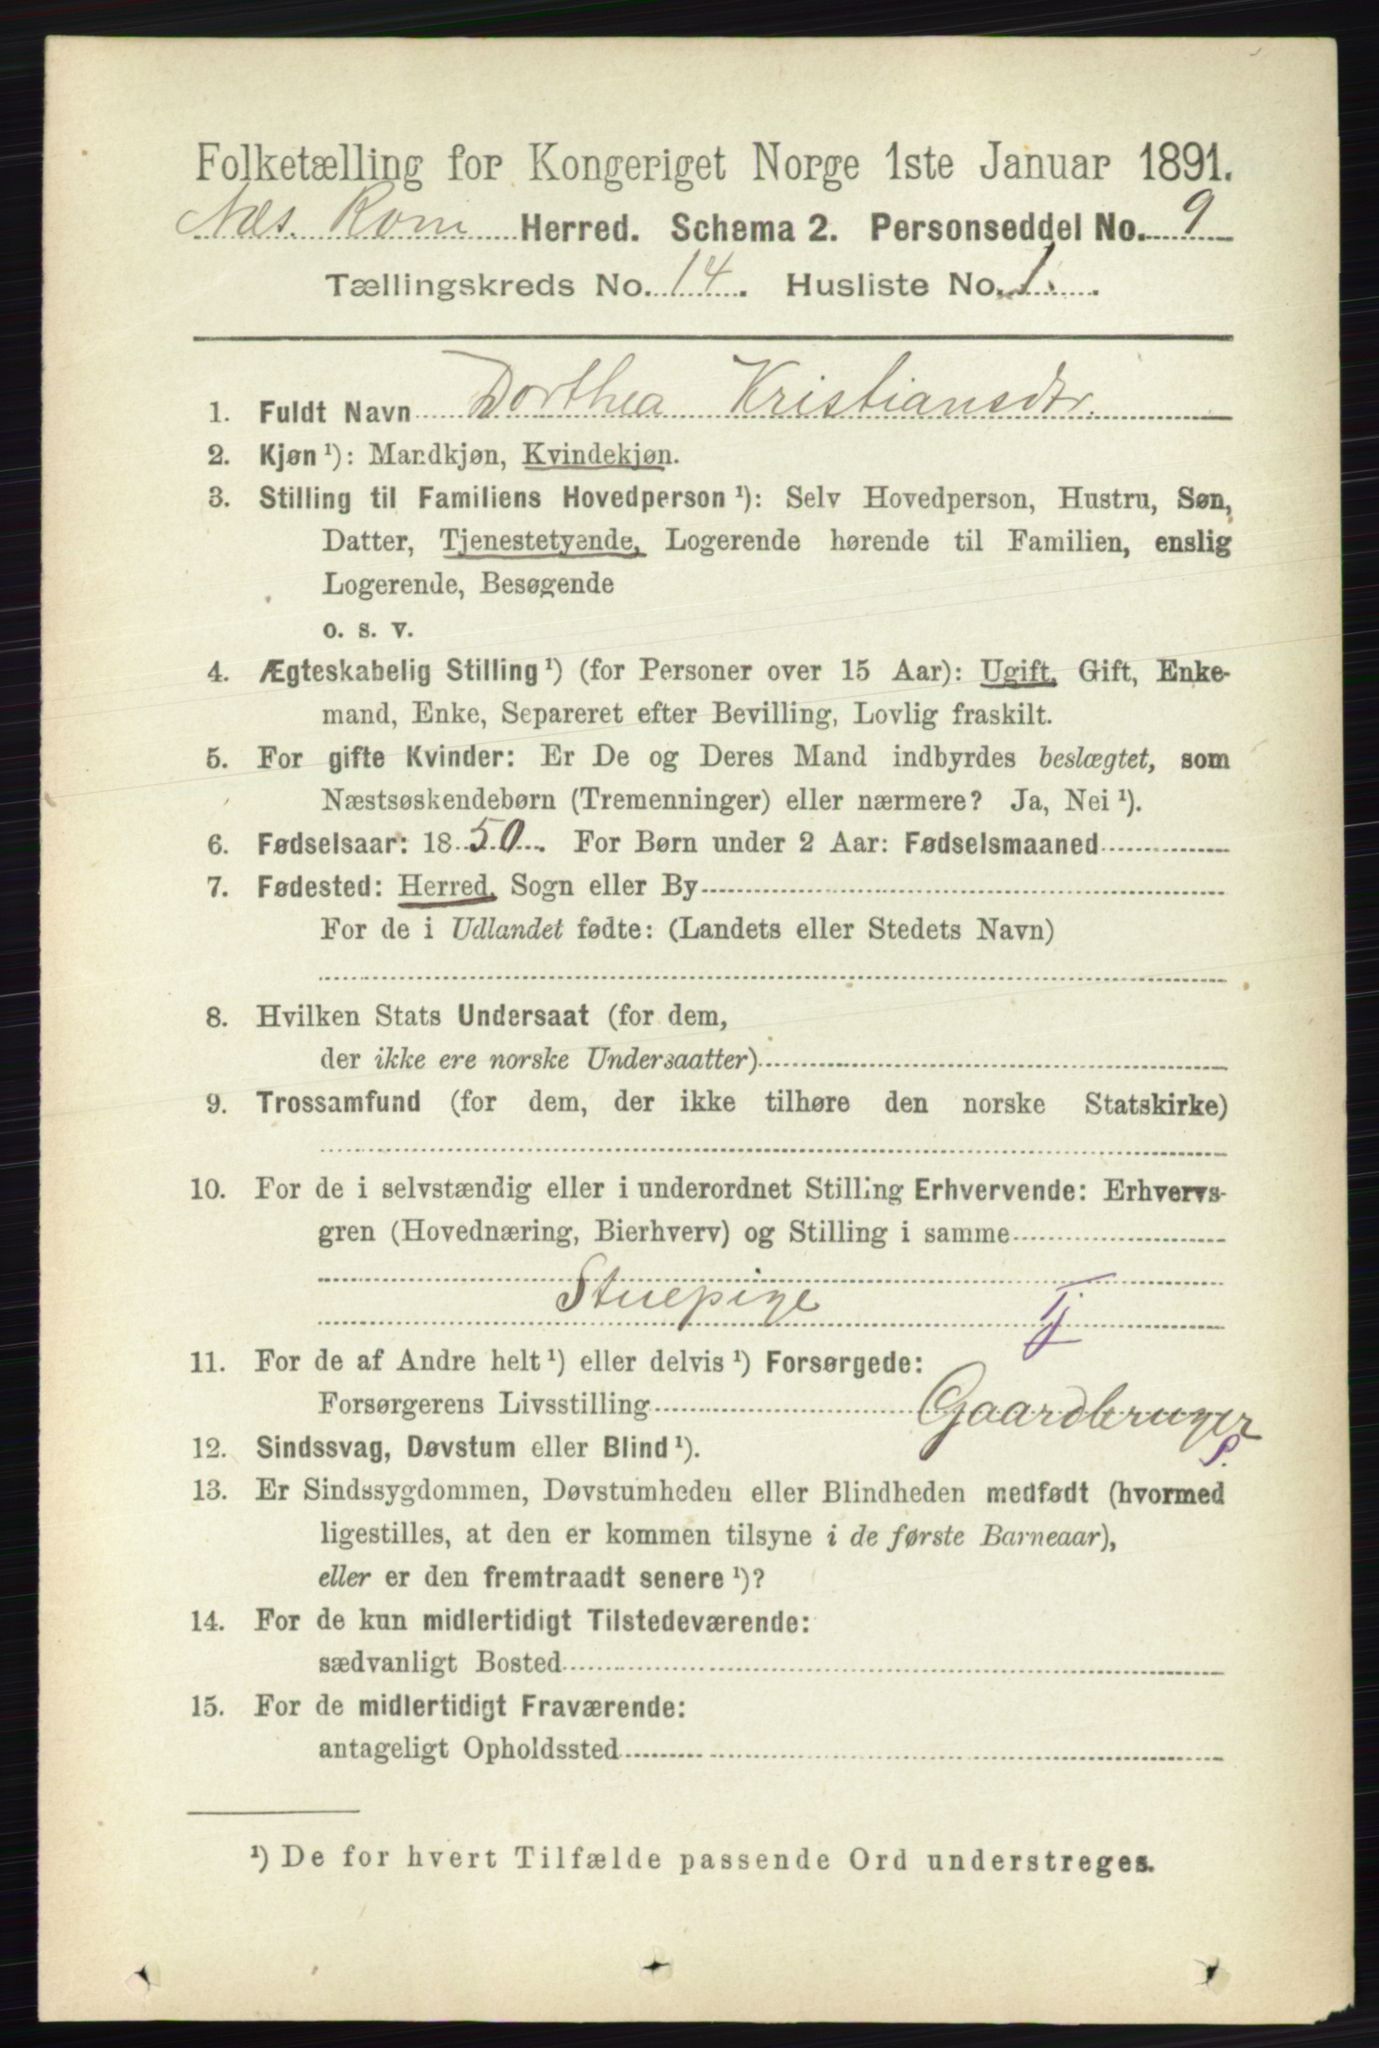 Folketælling for Kongeriget Norge 1ste Januar 1891.
Næs. Rom Herred. Schema 2. Personseddel No. 9
Tællingskreds No. 14. Husliste No. 1.
1. Fuldt Navn Dorthea Kristiansdtr.
2. Kjøn ¹): Mandkjøn, Kvindekjøn.
3. Stilling til Familiens Hovedperson ¹): Selv Hovedperson, Hustru, Søn,
Datter, Tjenestetyende, Logerende hørende til Familien, enslig
Logerende, Besøgende
o. s. v.
4. Ægteskabelig Stilling ¹) (for Personer over 15 Aar): Ugift, Gift, Enke-
mand, Enke, Separeret efter Bevilling, Lovlig fraskilt.
5. For gifte Kvinder: Er De og Deres Mand indbyrdes beslægtet, som
Næstsøskendebørn (Tremenninger) eller nærmere? Ja, Nei ¹).
6. Fødselsaar: 1850. For Børn under 2 Aar: Fødselsmaaned
7. Fødested: Herred, Sogn eller By
For de i Udlandet fødte: (Landets eller Stedets Navn)
8. Hvilken Stats Undersaat (for dem,
der ikke ere norske Undersaatter)
9. Trossamfund (for dem, der ikke tilhøre den norske Statskirke)
10. For de i selvstændig eller i underordnet Stilling Erhvervende: Erhvervs-
gren (Hovednæring, Bierhverv) og Stilling i samme
Stuepige Tj
11. For de af Andre helt ¹) eller delvis ¹) Forsørgede:
Forsørgerens Livsstilling Gaardbruger
P.
12. Sindssvag, Døvstum eller Blind ¹).
13. Er Sindssygdommen, Døvstumheden eller Blindheden medfødt (hvormed
ligestilles, at den er kommen tilsyne i de første Barneaar),
eller er den fremtraadt senere ¹)?
14. For de kun midlertidigt Tilstedeværende:
sædvanligt Bosted
15. For de midlertidigt Fraværende:
antageligt Opholdssted
¹) De for hvert Tilfælde passende Ord understreges.